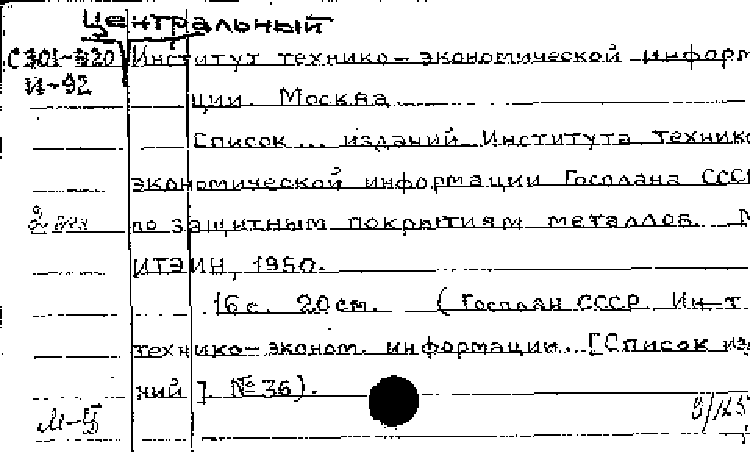 Центральный
С301-520 Институт технико-экономической информ
И-92
ции. Москва
Список... изданий Института технико
экономической информации Госплана СССР
2 экз по защитным покрытиям металлов. М
ИТЭИН, 1950.
16 с. 20 см. (Госплан СССР. Ин-т
технико-эконом. информации. [Список изд
ний]. № 36).
М-Б